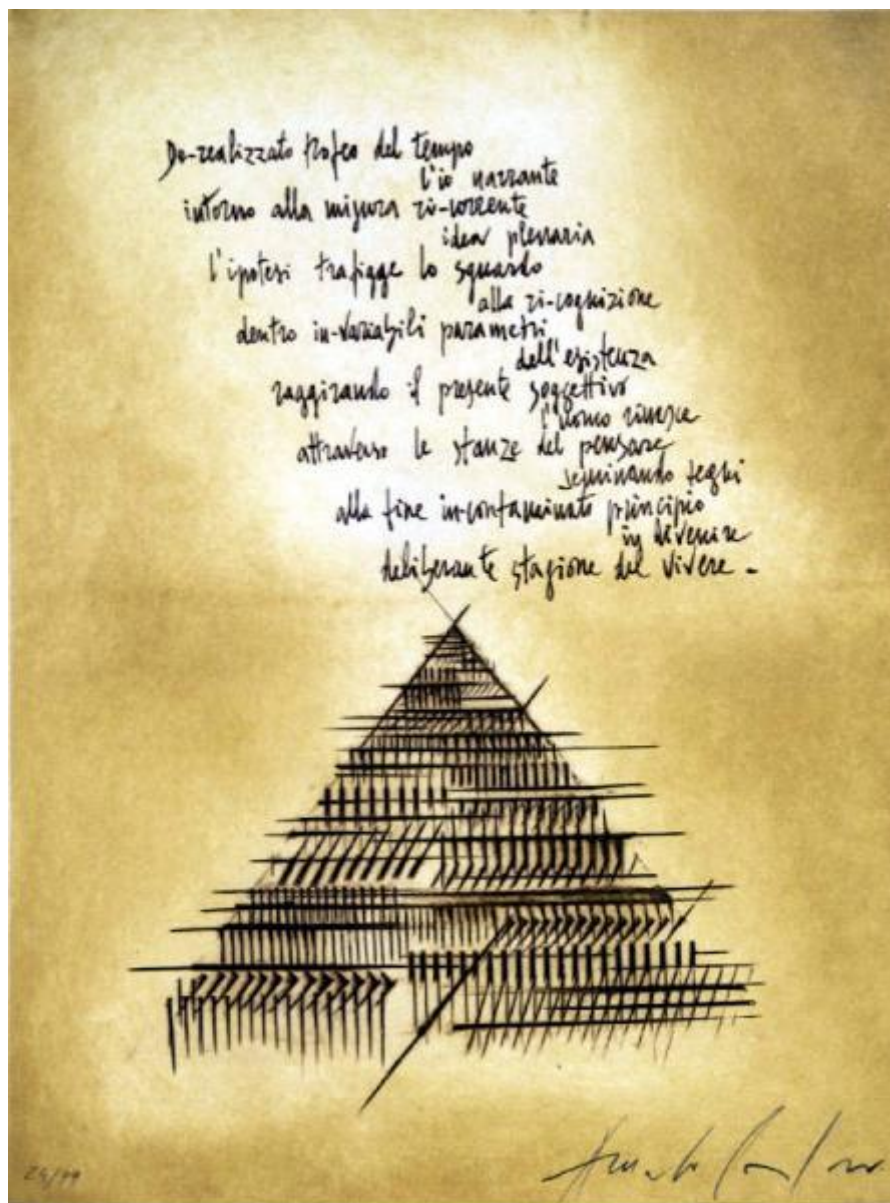 De-realizzato trofeo del tempo
l'io narrante
intorno alla misura ri-corrente
idea plenaria
l'ipotesi trafigge lo sguardo
alla ri-cognizione
dentro in-variabili parametri
dell'esistenza
raggirando il presente soggettivo
l'uomo riesce
attraverso le stanze del pensare
seminando segni
alla fine in-contaminato principio
in divenire
deliberante stagione del vivere -
/99